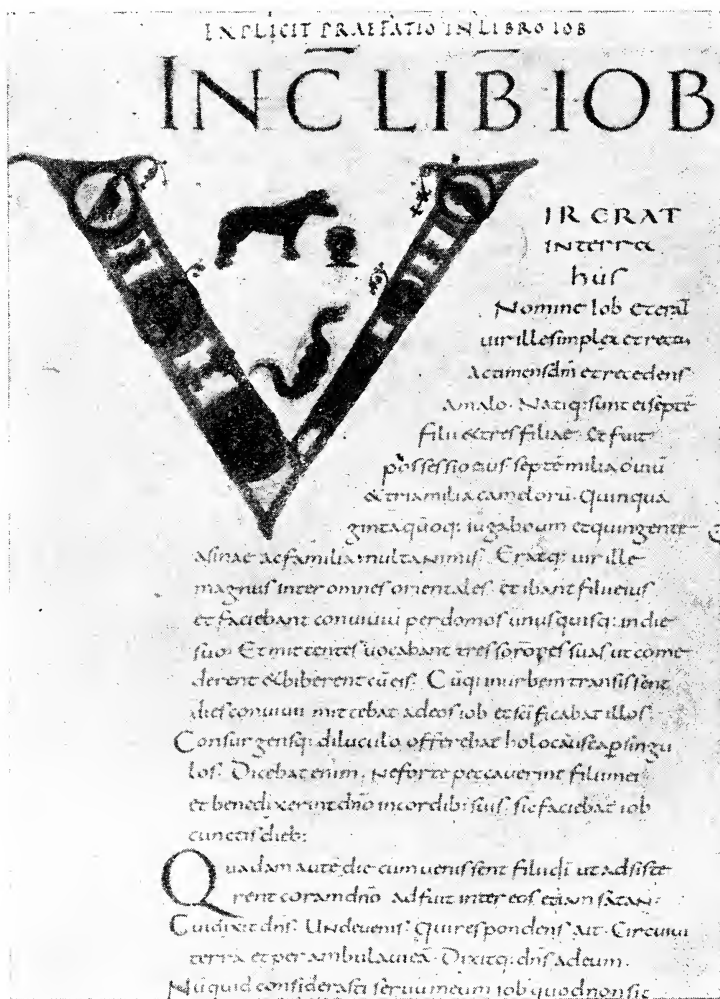 EXPLICIT PRAEFATIO IN LIBRO IOB
INC̄ LIB̄ IOB
VIR ERAT
INterra
hus
Nomine Iob et erat̄
uir ille simplex et rectus
Ac timens dm̄ et recedens
A malo. Natiq; sunt ei septē
filii & tres filiae. Et fuit
possessio eius septē milia ouiū
& tria milia camelorū. Quinqua
ginta quoq; iuga boum et quingente
asinae ac familia multa nimis. Eratq; uir ille
magnus inter omnes orientales. et ibant filii eius
et faciebant conuiuiū per domos unusquisq; in die
suo. Et mittentes uocabant tres sorores suas ut come
derent & biberent cū eis. Cūq; in urbem transissent
dies conuiuii mittebat ad eos iob et sc̄ificabat illos.
Consurgensq; diluculo offerebat holocausta p singu
los. Dicebat enim. Ne forte peccauerint filii mei
et benedixerint dn̄o in cordib; suis. sic faciebat iob
cunctis dieb;
Quadam autē die cum uenissent filii dī ut adsiste
rent coram dn̄o adfuit inter eos etiam satan.
Cui dixit dn̄s. Unde uenis. Qui respondens ait. Circuiui
terrā et perambulaui eā. Dixitq; dn̄s ad eum.
Nūquid considerasti seruum meum iob quod non sit